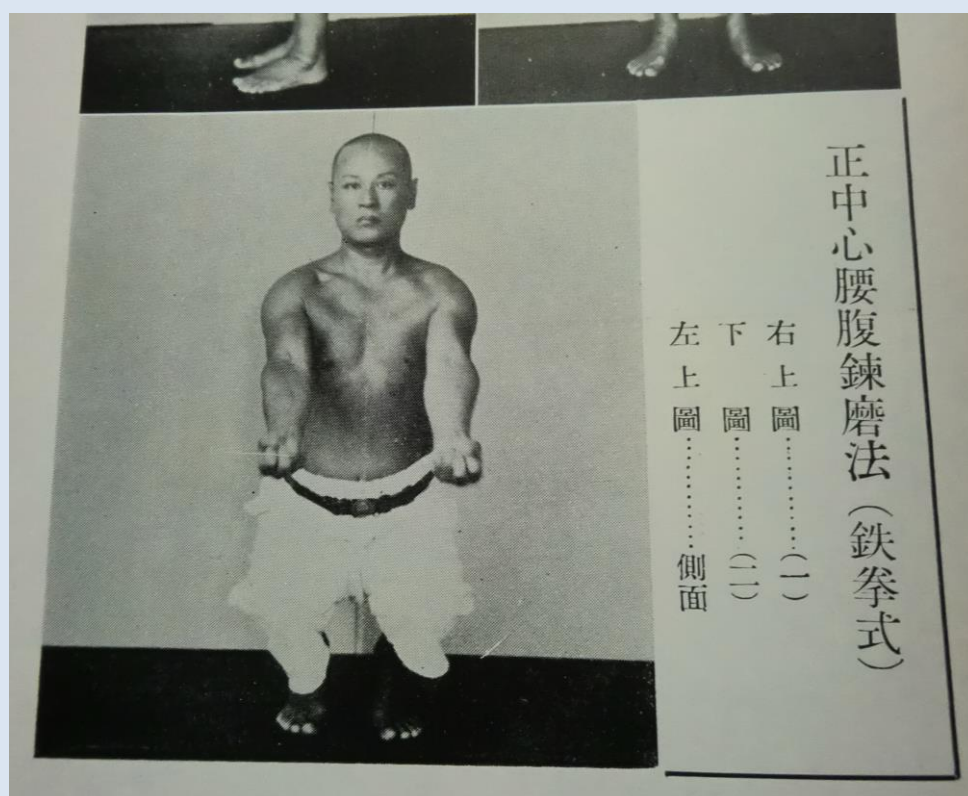 正中心腰腹鍊磨法（鉄拳式）
右上圖…………（一）
下圖…………（二）
左上圖…………側面